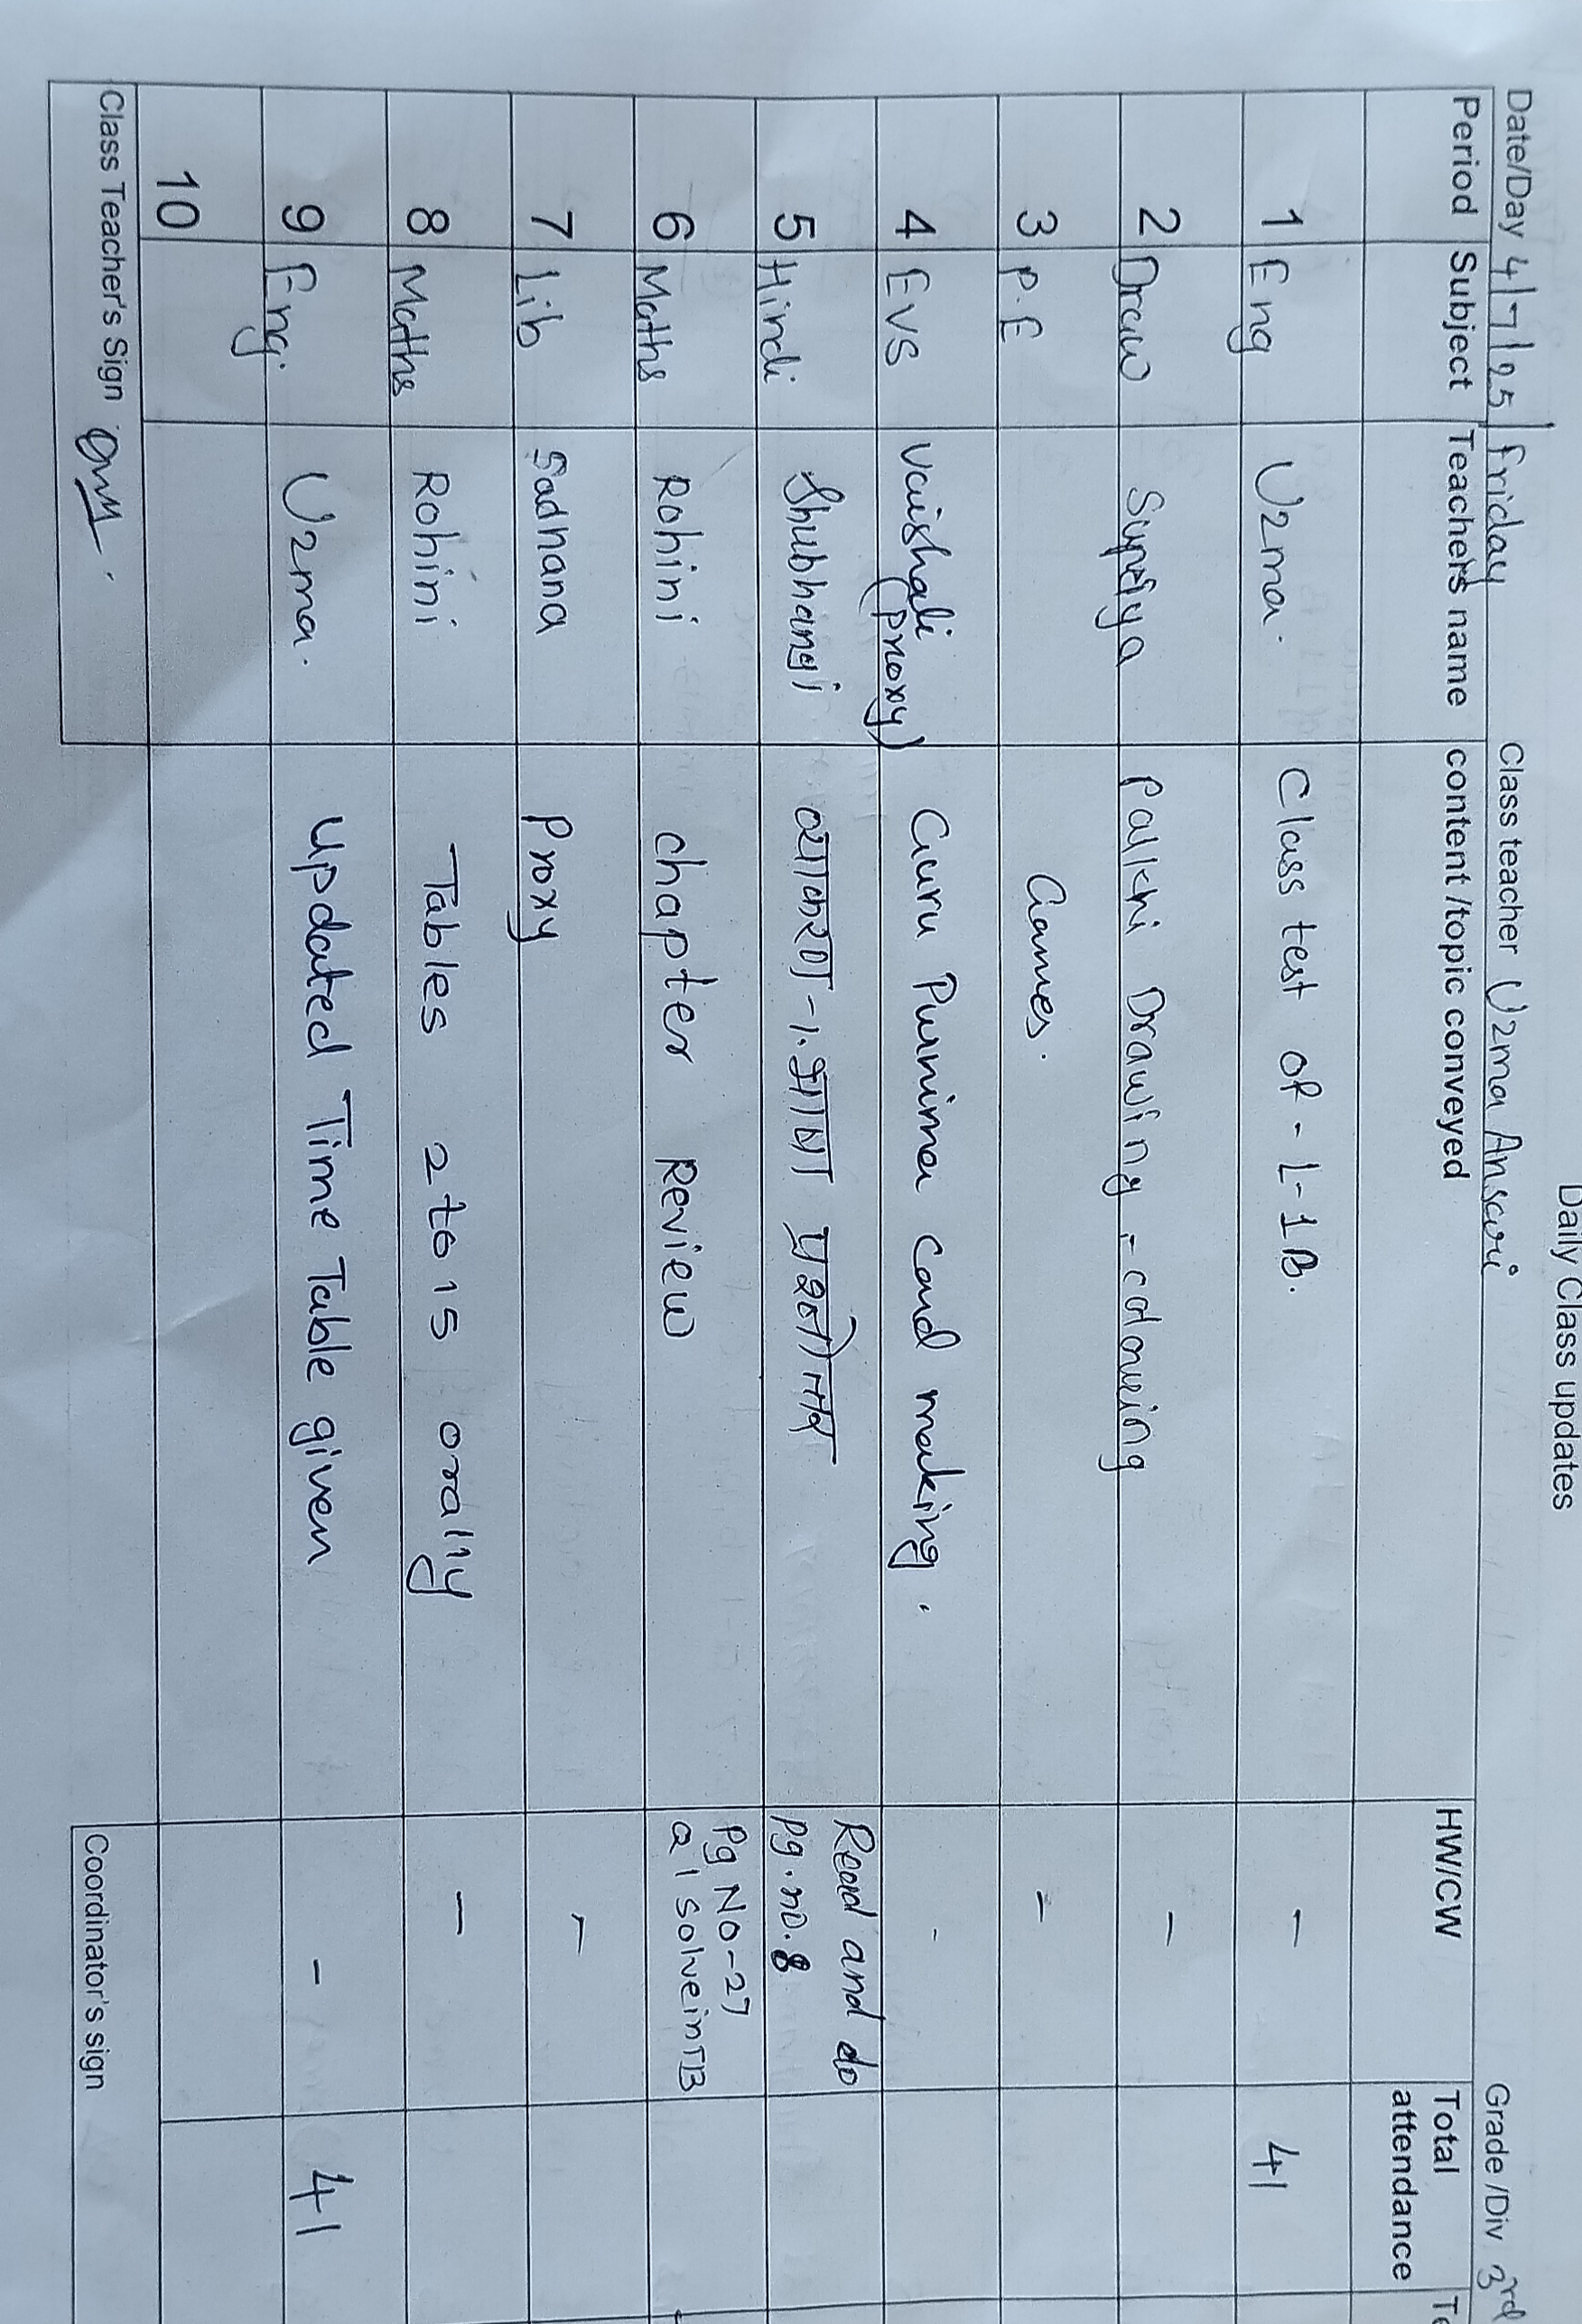 Daily Class updates
Date/Day 4/7/25/ Friday Class teacher Uzma Ansari Grade /Div 3rd
Period Subject Teachers name content /topic conveyed HW/CW Total attendance
1 Eng Uzma. Class test of - L-1B. - 41
2 Draw Supriya Palkhi Drawing = colouring -
3 P.E Games. -
4 EVS Vaishali (Proxy) Guru Purnima Card making. -
5 Hindi Shubhangi व्याकरण -1. भाषा प्रश्नोत्तर Read and do pg.no.8
6 Maths Rohini chapter Review Pg No-27 Q 1 solve in TB
7 Lib Sadhana Proxy -
8 Maths Rohini Tables 2 to 15 orally -
9 Eng. Uzma. Updated Time Table given - 41
10
Class Teacher's Sign Coordinator's sign